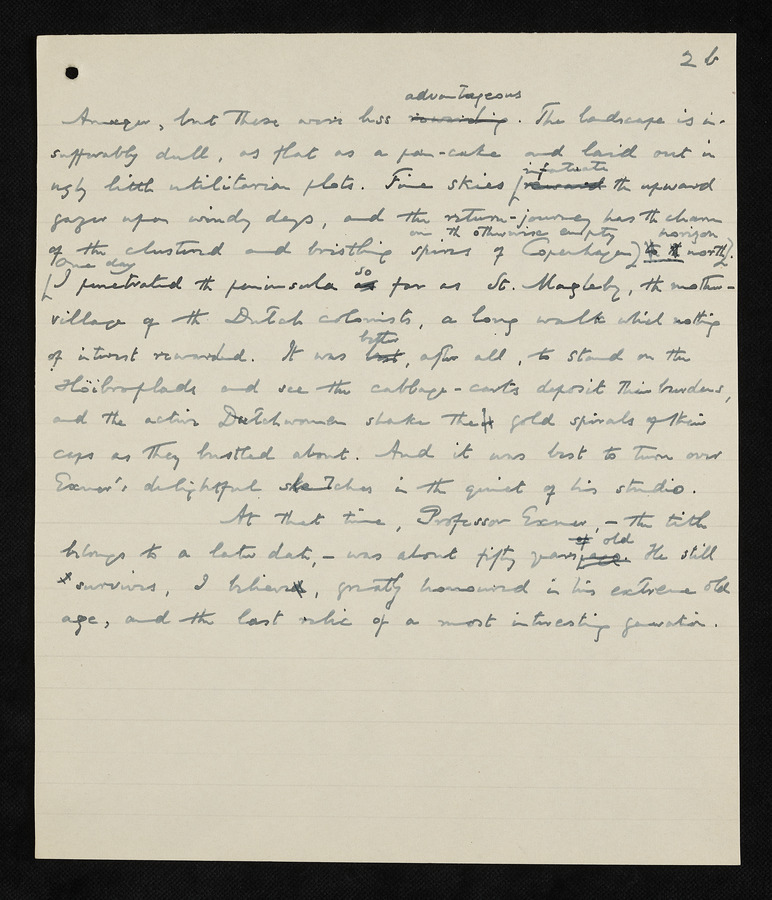 26
advantageous
Amager, but these were less rewarding. The landscape is in-
sufferably dull, as flat as a pan-cake and laid out in
infatuate
ugly little utilitarian plots. Fine skies [reward the upward
gazer upon windy days, and the return-journey has the charm
on the otherwise empty horizon
of the clustered and bristling spires of Copenhagen] to the north].
One day so
[I penetrated the peninsula as far as St. Magleby, the mother-
village of the Dutch colonists, a long walk which nothing
better
of interest rewarded. It was best, after all, to stand on the
Höibroplads and see the cabbage-carts deposit their burdens,
and the active Dutchwomen shake the gold spirals of their
caps as they bustled about. And it was best to turn over
Exner's delightful sketches in the quiet of his studio.
At that time, Professor Exner, – the title
of old
belongs to a later date, – was about fifty years age. He still
x survives, I believe, greatly honoured in his extreme old
age, and the last relic of a most interesting generation.